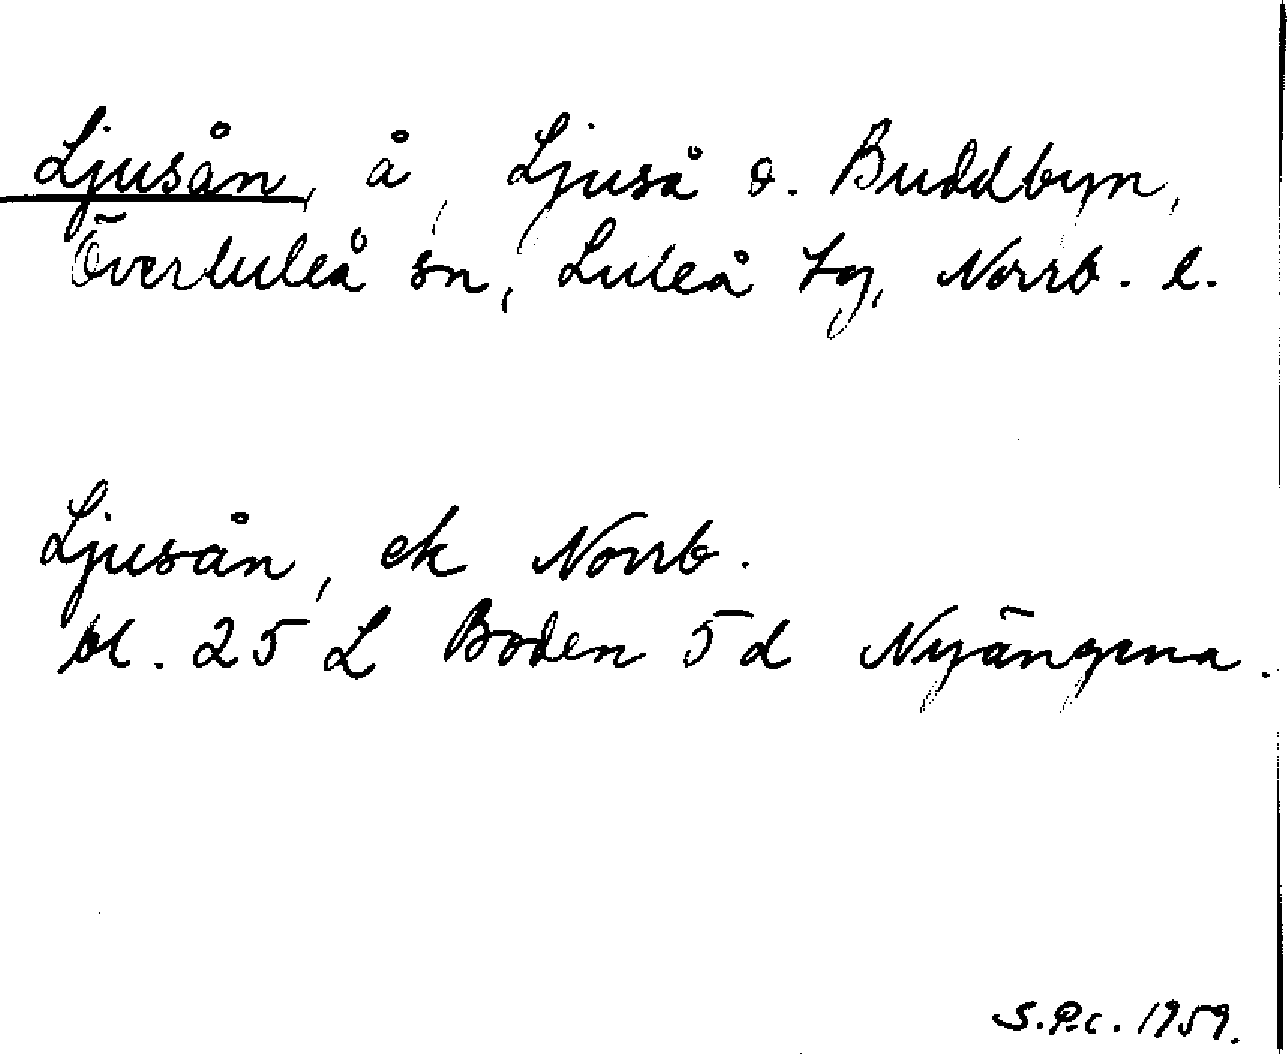 Ljusån, å, Ljuså o. Buddbyn,
Överluleå sn, Luleå tg, Norrb. l.
Ljusån, ek Norrb.
bl. 25 L Boden 5 d Nyängena.
S.P.c. 1959.